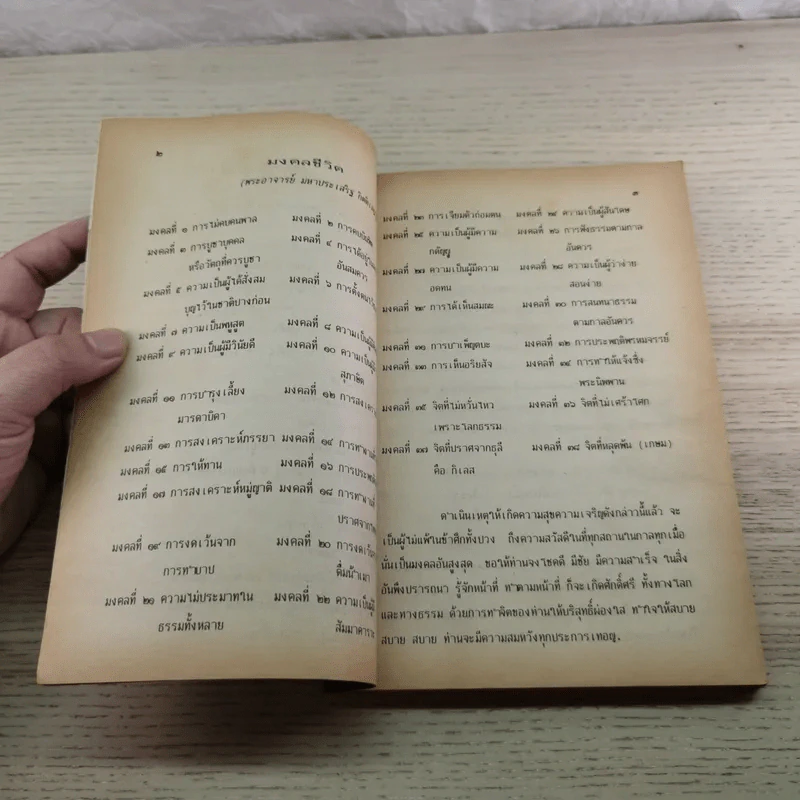 ๒
มงคลชีวิต
(พระอาจารย์ มหาประเสริฐ
มงคลที่ ๑ การไม่คบคนพาล มงคลที่ ๒ การคบ
มงคลที่ ๓ การบูชาบุคคล มงคลที่ ๔ การได้อยู่
หรือวัตถุที่ควรบูชา อันสมควร
มงคลที่ ๕ ความเป็นผู้ได้สั่งสม มงคลที่ ๖ การตั้งตน
บุญไว้ในชาติปางก่อน
มงคลที่ ๗ ความเป็นพหูสูต มงคลที่ ๘ ความเป็นผู้
มงคลที่ ๙ ความเป็นผู้มีวินัยดี มงคลที่ ๑๐ ความเป็นผู้
สุภาษิต
มงคลที่ ๑๑ การบำรุงเลี้ยง มงคลที่ ๑๒ การสงเคราะห์
มารดาบิดา
มงคลที่ ๑๓ การสงเคราะห์ภรรยา มงคลที่ ๑๔ การทำงาน
มงคลที่ ๑๕ การให้ทาน มงคลที่ ๑๖ การประพฤติ
มงคลที่ ๑๗ การสงเคราะห์หมู่ญาติ มงคลที่ ๑๘ การทำงาน
ปราศจาก
มงคลที่ ๑๙ การงดเว้นจาก มงคลที่ ๒๐ การงดเว้น
การทำบาป ดื่มน้ำเมา
มงคลที่ ๒๑ ความไม่ประมาทใน มงคลที่ ๒๒ ความเป็นผู้
ธรรมทั้งหลาย สัมมาคาระ
๓
มงคลที่ ๒๓ การเจียมตัวถ่อมตน มงคลที่ ๒๔ ความเป็นผู้สันโดษ
มงคลที่ ๒๕ ความเป็นผู้มีความ มงคลที่ ๒๖ การฟังธรรมตามกาล
กตัญญู อันควร
มงคลที่ ๒๗ ความเป็นผู้มีความ มงคลที่ ๒๘ ความเป็นผู้ว่าง่าย
อดทน สอนง่าย
มงคลที่ ๒๙ การได้เห็นสมณะ มงคลที่ ๓๐ การสนทนาธรรม
ตามกาลอันควร
มงคลที่ ๓๑ การบำเพ็ญตบะ มงคลที่ ๓๒ การประพฤติพรหมจรรย์
มงคลที่ ๓๓ การเห็นอริยสัจ มงคลที่ ๓๔ การทำให้แจ้งซึ่ง
พระนิพพาน
มงคลที่ ๓๕ จิตที่ไม่หวั่นไหว มงคลที่ ๓๖ จิตที่ไม่เศร้าโศก
เพราะโลกธรรม
มงคลที่ ๓๗ จิตที่ปราศจากธุลี มงคลที่ ๓๘ จิตที่หลุดพ้น (เกษม)
คือ กิเลส
ดำเนินเหตุให้เกิดความสุขความเจริญดังกล่าวนี้แล้ว จะ
เป็นผู้ไม่แพ้ในข้าศึกทั้งปวง ถึงความสวัสดีในที่ทุกสถานในกาลทุกเมื่อ
นั่นเป็นมงคลอันสูงสุด ขอให้ท่านจงโชคดี มีชัย มีความสำเร็จ ในสิ่ง
อันพึงปรารถนา รู้จักหน้าที่ ทำตามหน้าที่ ก็จะเกิดศักดิ์ศรี ทั้งทางโลก
และทางธรรม ด้วยการทำจิตของท่านให้บริสุทธิ์ผ่องใส ทำใจให้สบาย
สบาย สบาย ท่านจะมีความสมหวังทุกประการเทอญ.